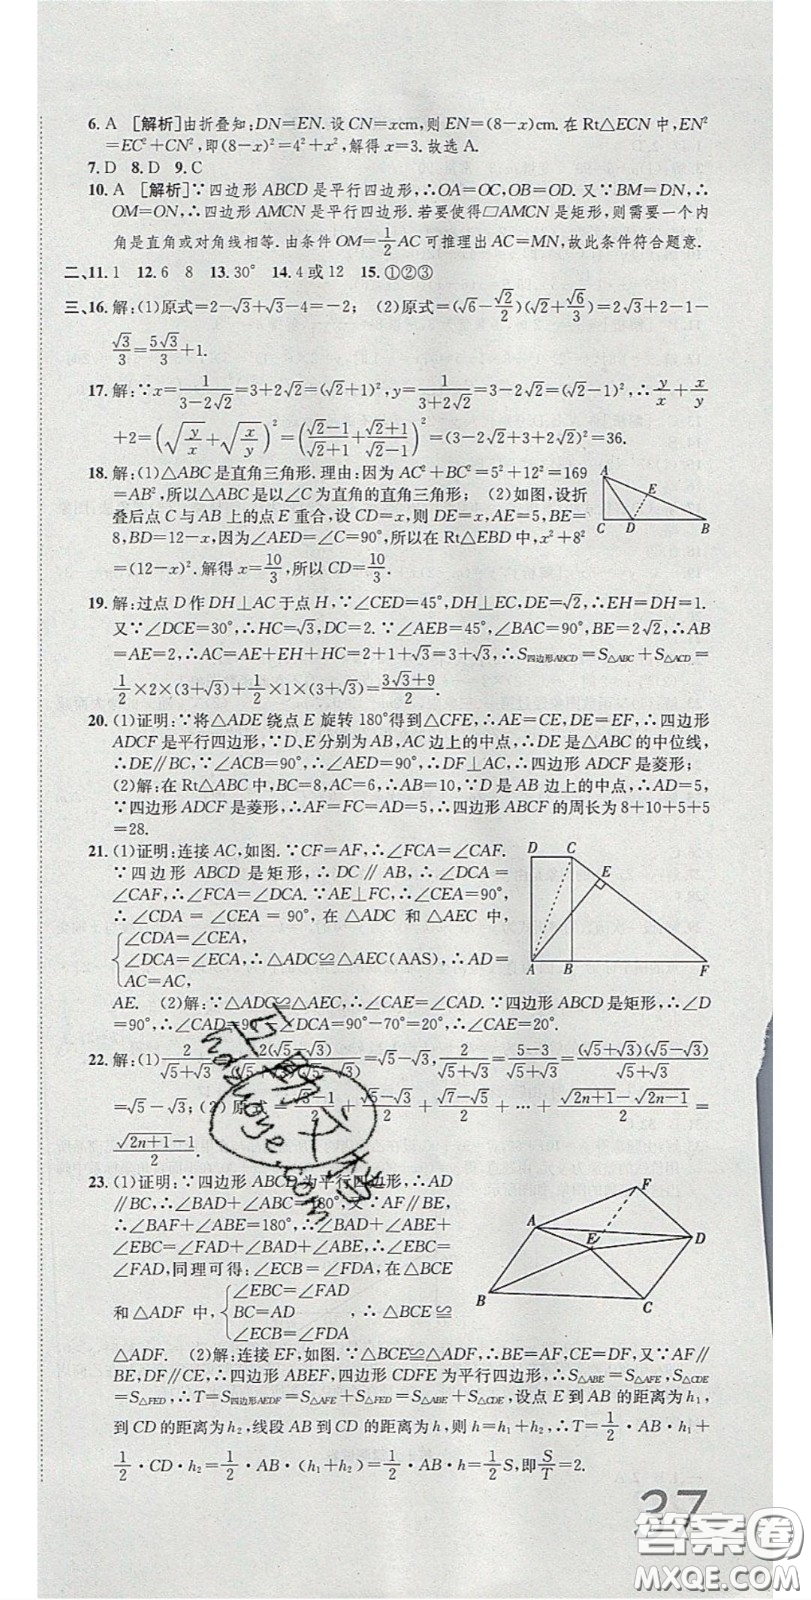 6. A [解析]由折叠知:DN=EN. 设 CN=xcm,则 EN=(8-x)cm. 在 Rt△ECN 中,EN²
=EC²+CN²,即(8-x)²=4²+x²,解得 x=3. 故选 A.
7. D 8. D 9. C
10. A [解析]∵四边形 ABCD 是平行四边形,∴OA=OC,OB=OD. 又∵BM=DN,∴
OM=ON,∴四边形 AMCN 是平行四边形. 若要使得▱AMCN 是矩形,则需要一个内
角是直角或对角线相等. 由条件 OM=1/2 AC 可推理出 AC=MN,故此条件符合题意.
二、11. 1 12. 6 8 13. 30° 14. 4 或 12 15. ①②③
三、16. 解:(1)原式=2-√3+√3-4=-2; (2)原式=(√6-√2/2)(√2+√6/3)=2√3+2-1-
√3/3=5√3/3+1.
17. 解:∵x=1/(3-2√2)=3+2√2=(√2+1)²,y=1/(3+2√2)=3-2√2=(√2-1)²,∴y/x+x/y
+2=(√(y/x)+√(x/y))²=((√2-1)/(√2+1)+(√2+1)/(√2-1))²=(3-2√2+3+2√2)²=36.
18. 解:(1)△ABC 是直角三角形. 理由:因为 AC²+BC²=5²+12²=169
=AB²,所以△ABC 是以∠C 为直角的直角三角形; (2)如图,设折
叠后点 C 与 AB 上的点 E 重合,设 CD=x,则 DE=x,AE=5,BE=
8,BD=12-x,因为∠AED=∠C=90°,所以在 Rt△EBD 中,x²+8²
=(12-x)². 解得 x=10/3,所以 CD=10/3.
A
E
C
D
B
19. 解:过点 D 作 DH⊥AC 于点 H,∵∠CED=45°,DH⊥EC,DE=√2,∴EH=DH=1.
又∵∠DCE=30°,∴HC=√3,DC=2. ∵∠AEB=45°,∠BAC=90°,BE=2√2,∴AB
=AE=2,∴AC=AE+EH+HC=2+1+√3=3+√3,∴S四边形ABCD=S△ABC+S△ACD=
1/2×2×(3+√3)+1/2×1×(3+√3)=(3√3+9)/2.
20. (1)证明:∵将△ADE 绕点 E 旋转 180°得到△CFE,∴AE=CE,DE=EF,∴四边形
ADCF 是平行四边形,∵D、E 分别为 AB,AC 边上的中点,∴DE 是△ABC 的中位线,
∴DE∥BC,∵∠ACB=90°,∴∠AED=90°,∴DF⊥AC,∴四边形 ADCF 是菱形;
(2)解:在 Rt△ABC 中,BC=8,AC=6,∴AB=10,∵D 是 AB 边上的中点,∴AD=5,
∵四边形 ADCF 是菱形,∴AF=FC=AD=5,∴四边形 ABCF 的周长为 8+10+5+5
=28.
21. (1)证明:连接 AC,如图. ∵CF=AF,∴∠FCA=∠CAF.
∵四边形 ABCD 是矩形,∴DC∥AB,∴∠DCA=
∠CAF,∴∠FCA=∠DCA. ∵AE⊥FC,∴∠CEA=90°,
∴∠CDA=∠CEA=90°,在△ADC 和△AEC 中,
{∠CDA=∠CEA,
∠DCA=∠ECA,∴△ADC≌△AEC(AAS),∴AD=
AC=AC,
D
C
E
A
B
F
AE. (2)解:∵△ADC≌△AEC,∴AE=AD. ∵四边形 ABCD 是矩形,∴∠D
=90°,∴∠CAD=90°-∠DCA=90°-70°=20°,∴∠CAE=20°.
22. 解:(1)2/(√5+√3)=2(√5-√3)/=√5-√3,2/(√5+√3)=(5-3)/(√5+√3)=(√5+√3)(√5-√3)/(√5+√3)
=√5-√3; (2)原式=(√3-1)/2+(√5-√3)/2+(√7-√5)/2+…+(√(2n+1)-√(2n-1))/2=
(√(2n+1)-1)/2.
23. (1)证明:∵四边形 ABCD 为平行四边形,∴AD
∥BC,∴∠BAD+∠ABC=180°,又∵AF∥BE,
∴∠BAF+∠ABE=180°,∴∠BAD+∠ABE+
∠EBC=∠BAD+∠FAD+∠ABE,∴∠EBC=
∠FAD,同理可得:∠ECB=∠FDA. 在△BCE
和△ADF 中,{∠EBC=∠FAD
BC=AD
∠ECB=∠FDA ,∴△BCE≌
F
A
E
D
B
C
△ADF. (2)解:连接 EF,如图. ∵△BCE≌△ADF,∴BE=AF,CE=DF,又∵AF∥
BE,DF∥CE,∴四边形 ABEF,四边形 CDFE 为平行四边形,∴S△ABE=S△AFE,S△CDE
=S△FED,∴T=S四边形AEDF=S△AFE+S△FED=S△ABE+S△CDE,设点 E 到 AB 的距离为 h₁,
到 CD 的距离为 h₂,线段 AB 到 CD 的距离为 h,则 h=h₁+h₂,∴T=1/2·AB·h₁+
1/2·CD·h₂=1/2·AB·(h₁+h₂)=1/2·AB·h=1/2S,即S/T=2.
互助文档
hdzuoye.com
27
答案卷
MXQE.COM